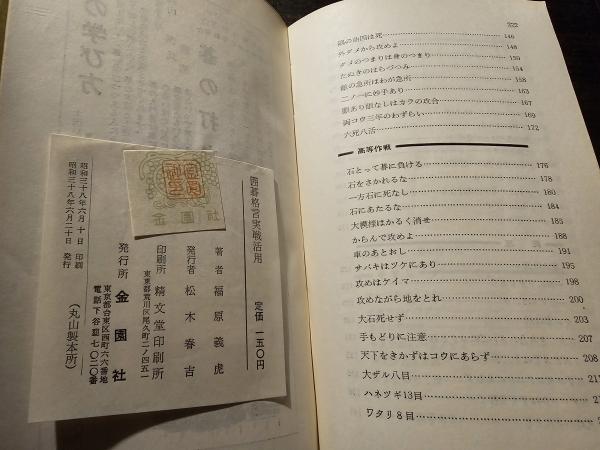 の学び方
碁の打
囲碁格言実戦活用
定価 一五〇円
著者 福原義虎
発行者 松木春吉
印刷所 精文堂印刷所
東京都荒川区尾久町二ノ四五一
発行所 金園社
東京都台東区西町六六番地
電話下谷 七〇二〇番
(丸山製本所)
昭和三十八年六月十日 印刷
昭和三十八年六月二十日 発行
222
隅の曲四は死 146
外ダメから攻めよ 148
ダメのつまりは身のつまり 150
たぬきのはらづつみ 154
敵の急所はわが急所 158
二ノ一に妙手あり 163
眼あり眼なしはカラの攻合 167
両コウ三年のわずらい 169
六死八活 172
高等作戦
石とって碁に負ける 176
石をさかれるな 178
一方石に死なし 180
石にあたるな 184
大模様はかるく消せ 185
からんで攻めよ 188
車のあとおし 191
サバキはツケにあり 195
攻めはケイマ 198
攻めながら地をとれ 200
大石死せず 203
手もどりに注意 207
天下をきかずはコウにあらず 208
大ザル八目
ハネツギ13目
ワタリ8目